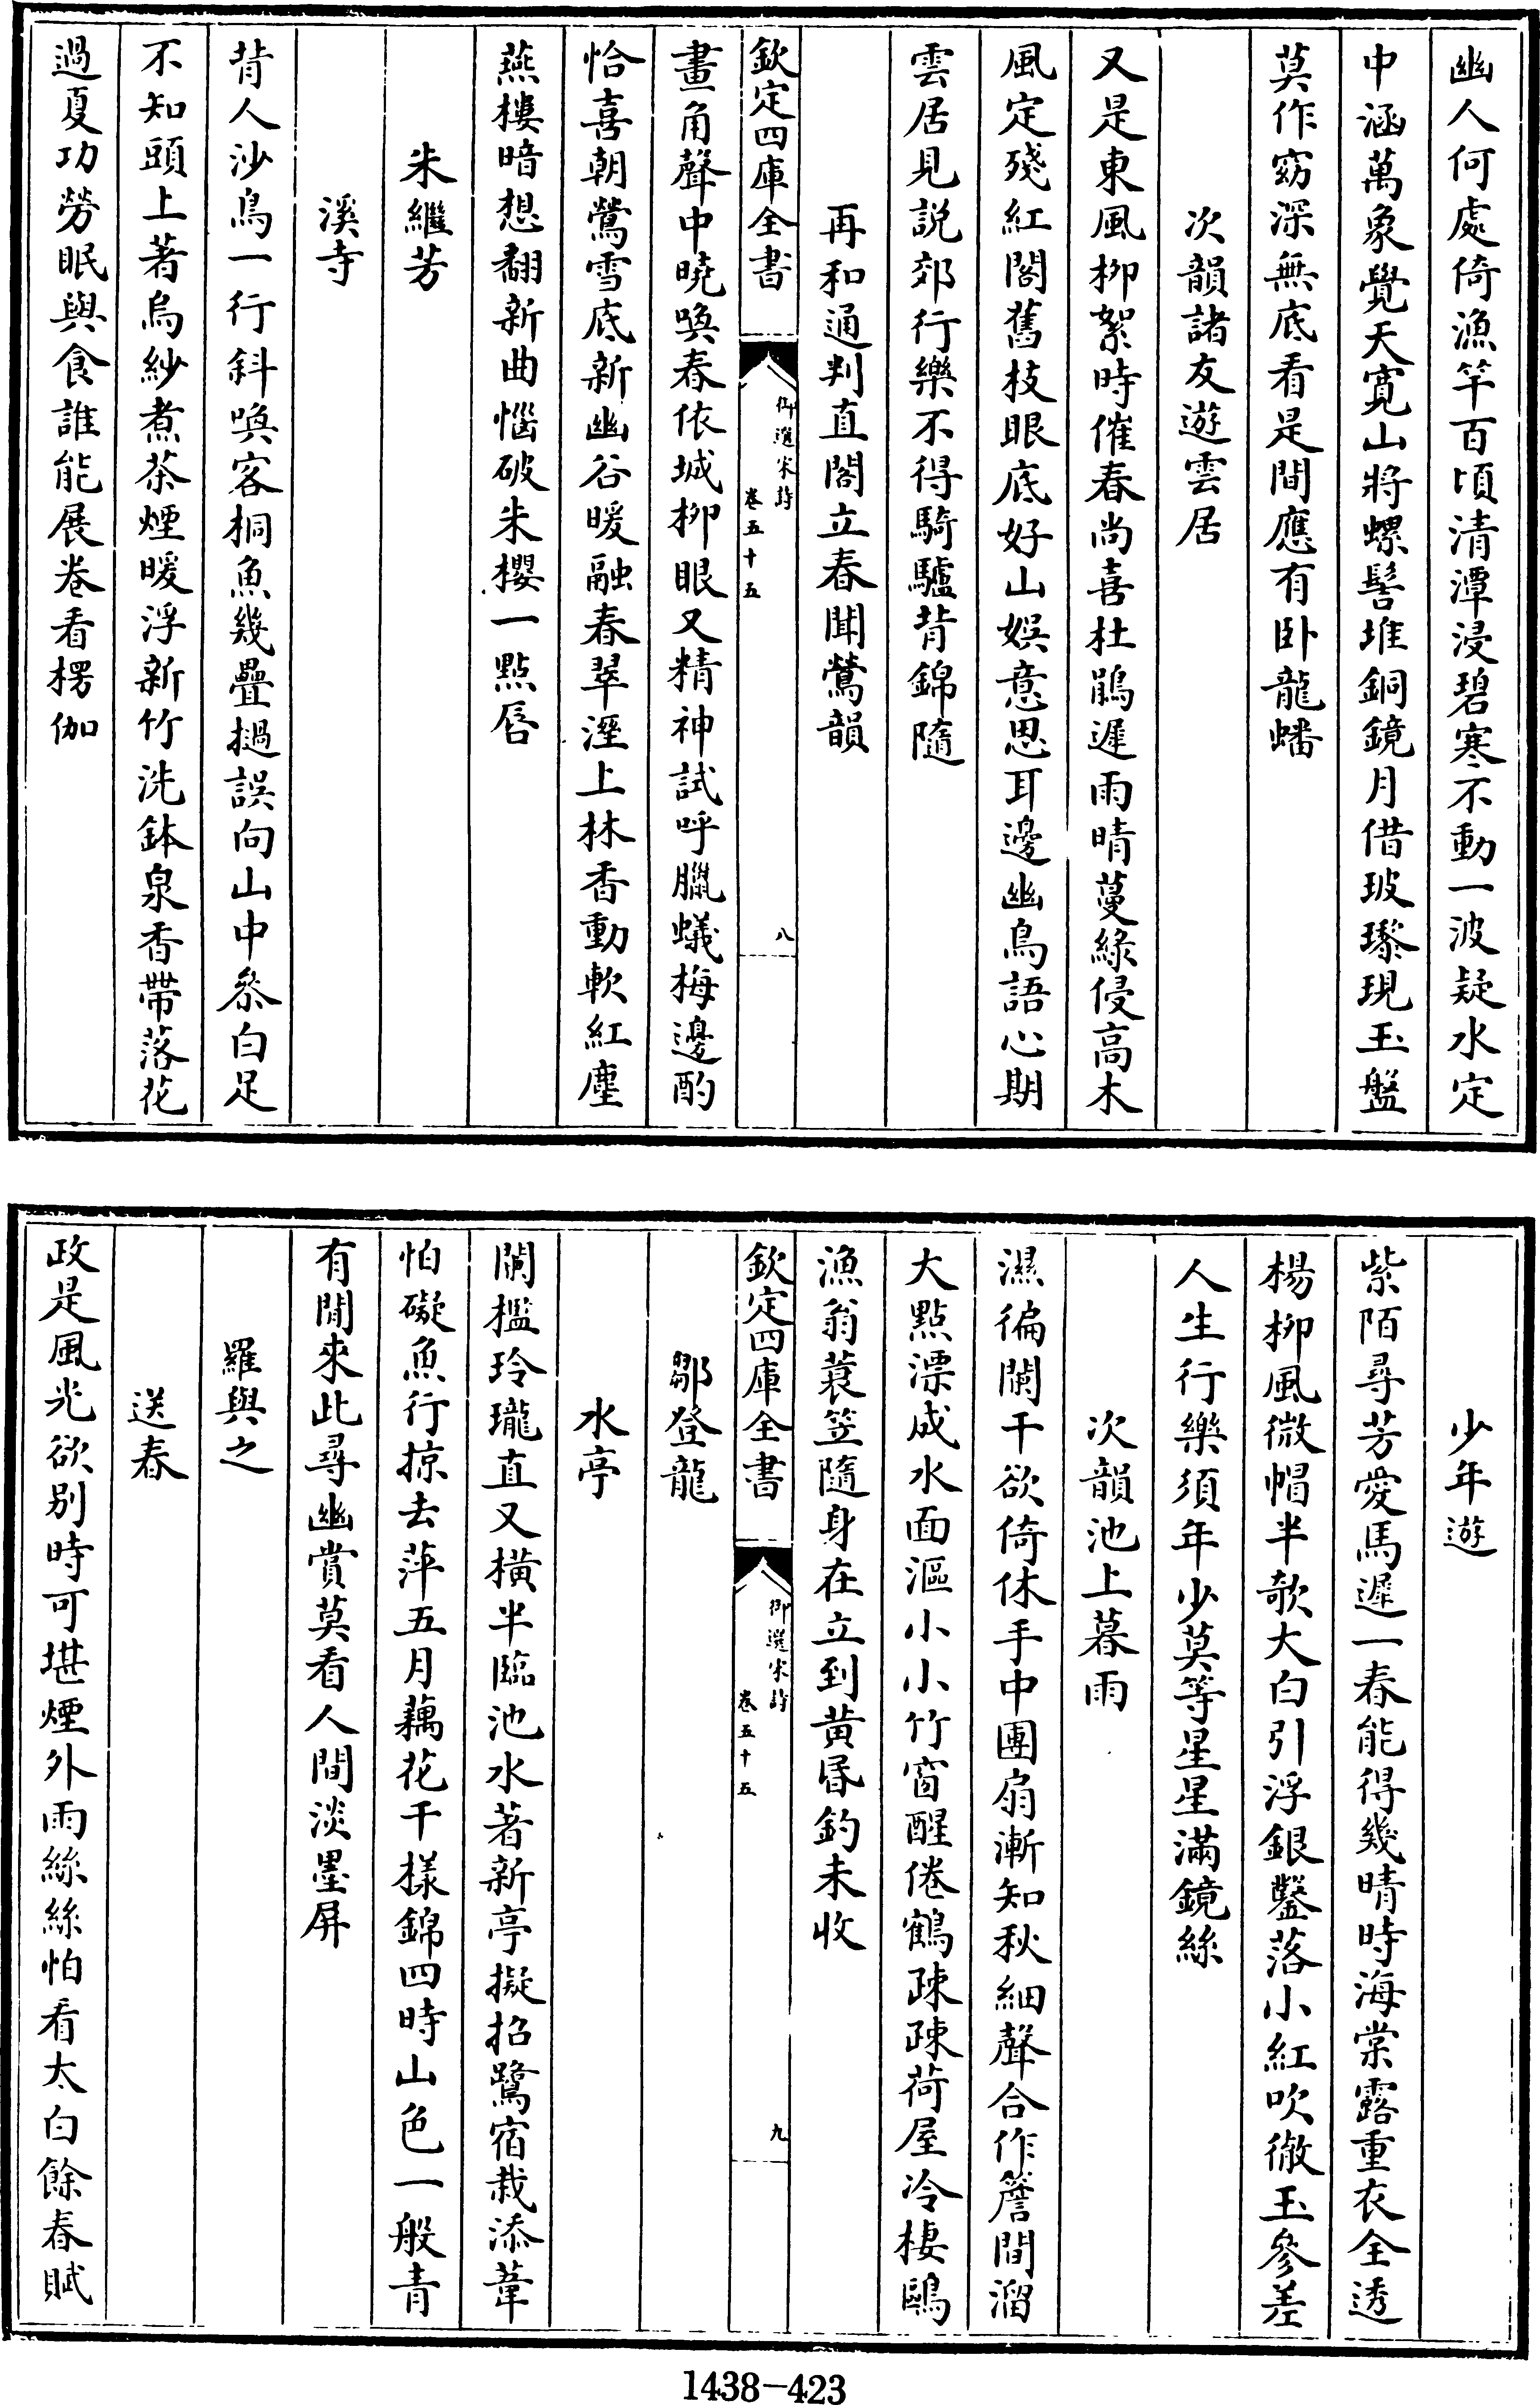 幽人何處倚漁竿百頃清潭浸碧寒不動一波疑水定
中涵萬象覺天寛山將螺髻堆銅鏡月借玻瓈現玉盤
莫作窈深無底看是間應有卧龍蟠
次韻諸友遊雲居
又是東風柳絮時催春尚喜杜鵑遲雨晴蔓綠侵高木
風定殘紅閣舊枝眼底好山娯意思耳邊幽鳥語心期
雲居見説郊行樂不得騎驢背錦隨
再和通判直閣立春聞鶯韻
欽定四庫全書
御選宋詩
卷五十五
八
畫角聲中曉喚春依城柳眼又精神試呼臘蟻梅邊酌
恰喜朝鶯雪底新幽谷暖融春翠溼上林香動軟紅塵
燕樓暗想翻新曲惱破朱櫻一點唇
朱繼芳
溪寺
背人沙鳥一行斜喚客桐魚幾疊撾誤向山中叅白足
不知頭上著烏紗煮茶煙暖浮新竹洗鉢泉香帶落花
過夏功勞眠與食誰能展卷看楞伽
少年遊
紫陌尋芳愛馬遲一春能得幾晴時海棠露重衣全透
楊柳風微帽半欹大白引浮銀鑿落小紅吹徹玉參差
人生行樂須年少莫等星星滿鏡絲
次韻池上暮雨
濕徧闌干欲倚休手中團扇漸知秋細聲合作簷間溜
大點漂成水面漚小小竹窗醒倦鶴疎疎荷屋冷棲鷗
漁翁蓑笠隨身在立到黄昏釣未收
欽定四庫全書
御選宋詩
卷五十五
九
鄒登龍
水亭
闌檻玲瓏直又橫半臨池水著新亭擬招鷺宿栽添葦
怕礙魚行掠去萍五月藕花千樣錦四時山色一般青
有閒來此尋幽賞莫看人間淡墨屏
羅與之
送春
政是風光欲别時可堪煙外雨絲絲怕看太白餘春賦
1438—423